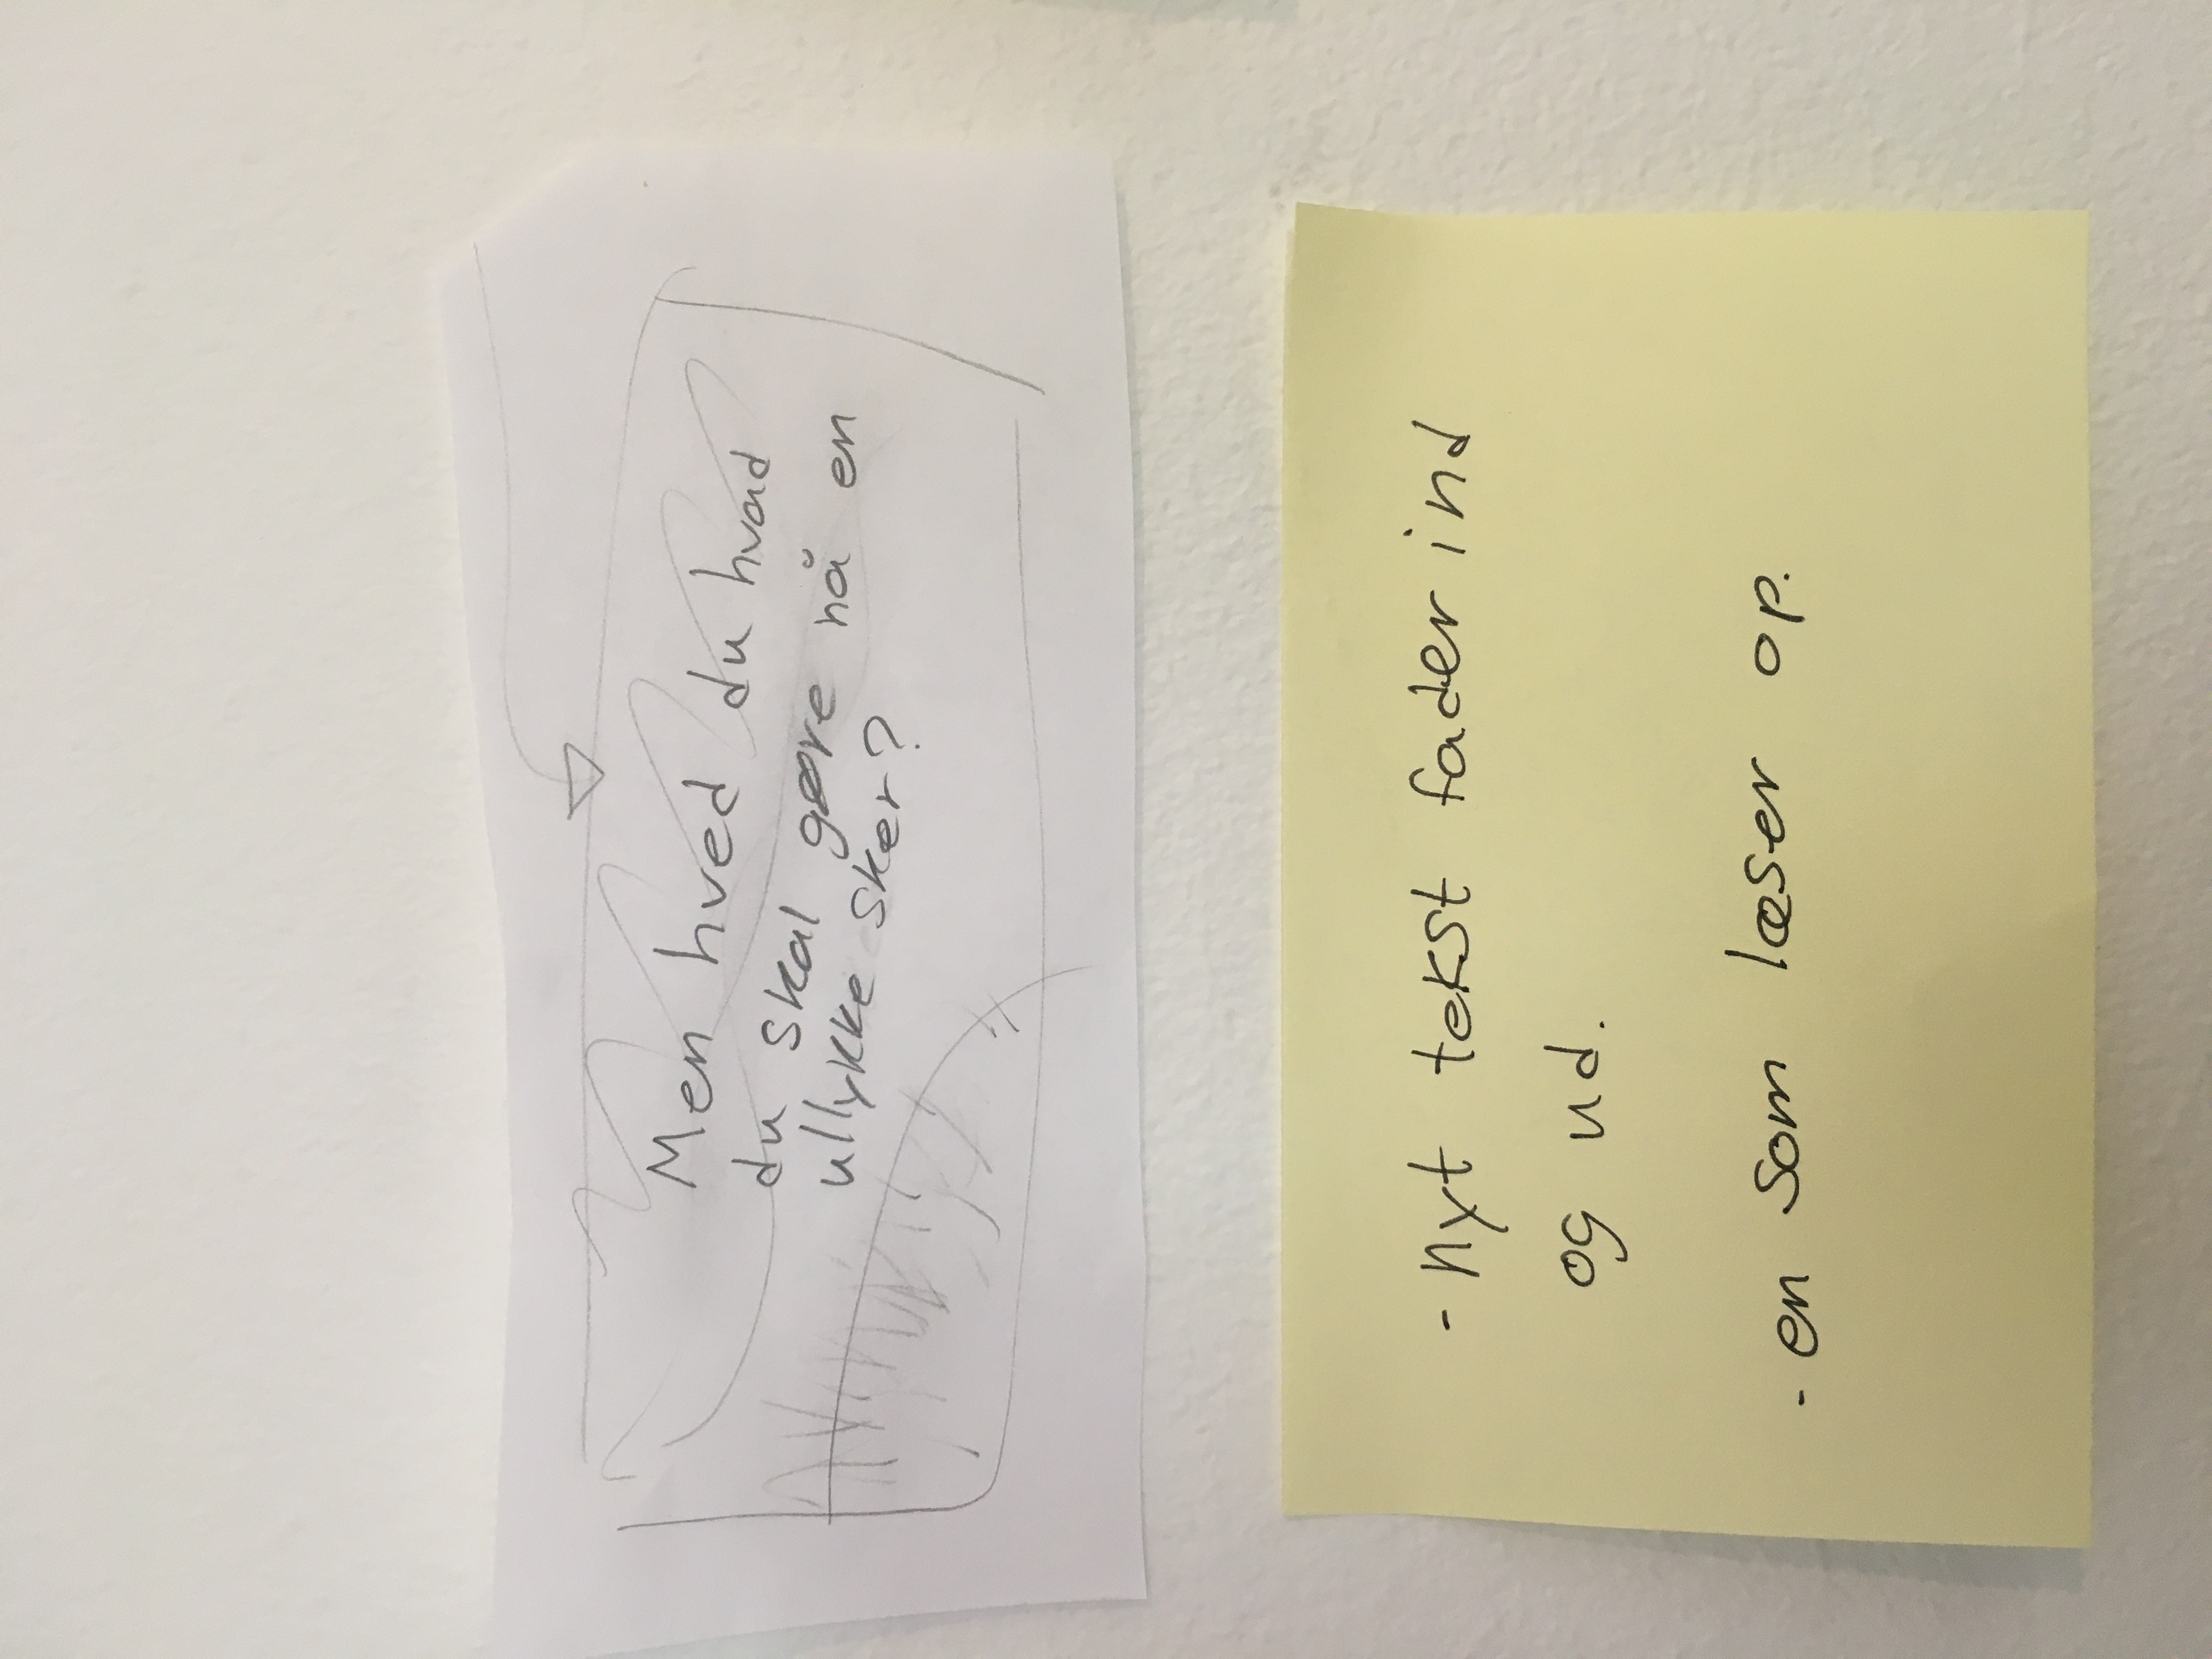 Men hved du hvad
du skal gøre nå en
ullykke sker?
- nyt tekst fader ind
og ud.
- en som læser op.